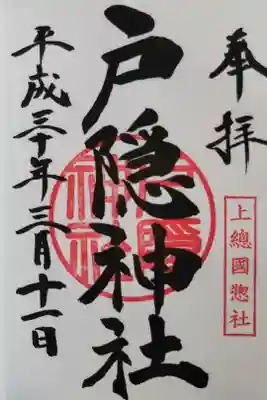 奉拝
上總國惣社
戸隠神社
平成三十年三月十一日